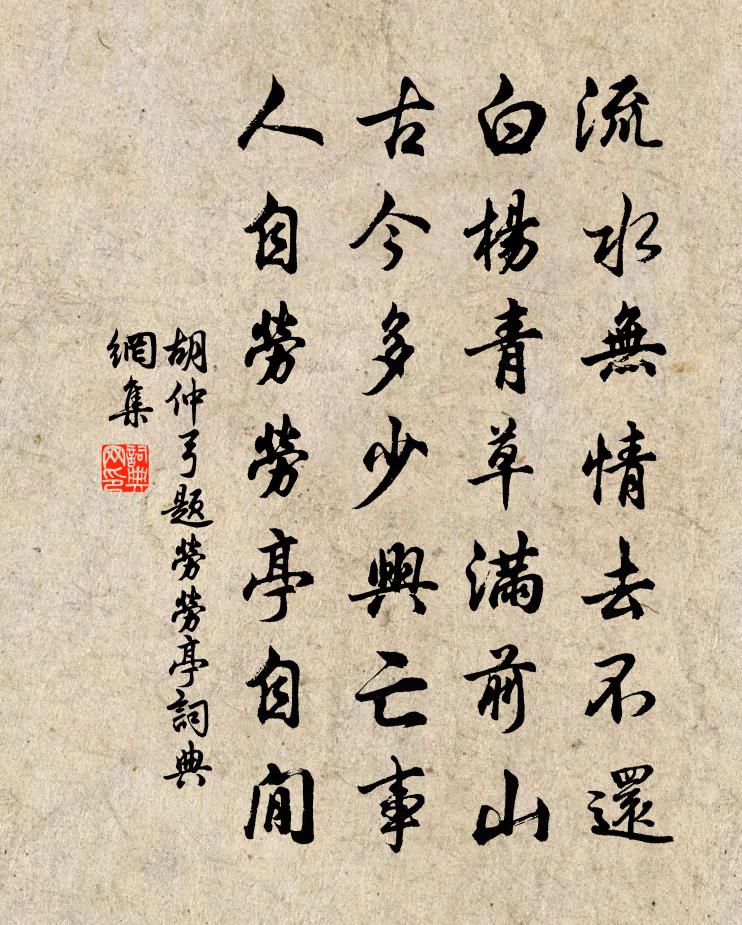 流水無情去不還
白楊青草滿前山
古今多少興亡事
人自勞勞亭自閒
胡仲弓題勞勞亭詞典
網集
詞典網印